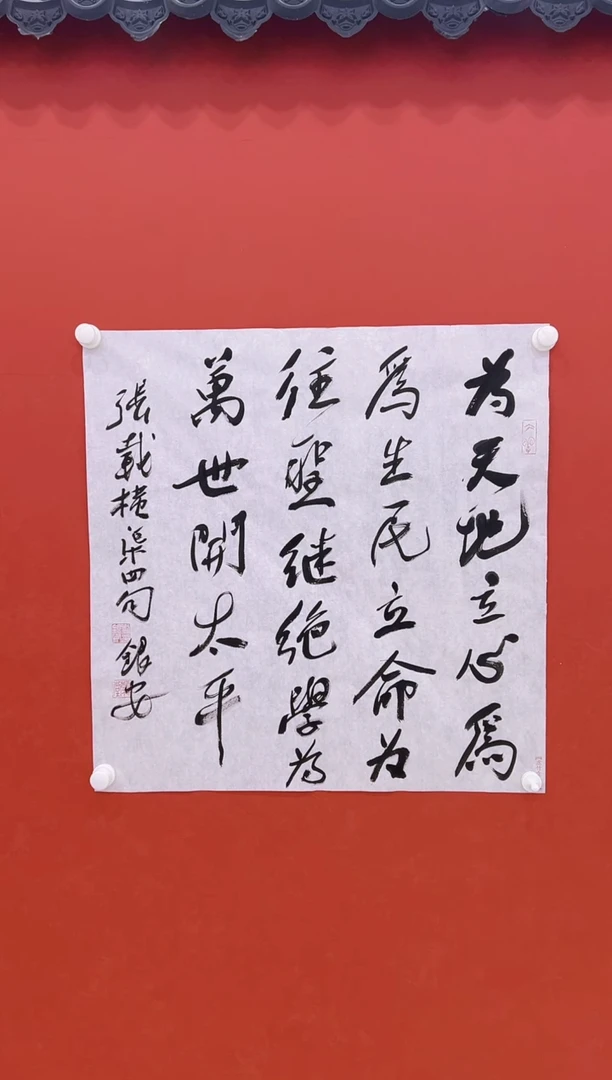 为天地立心爲
爲生民立命为
往聖继绝學为
萬世開太平
張載横渠四句 銀安